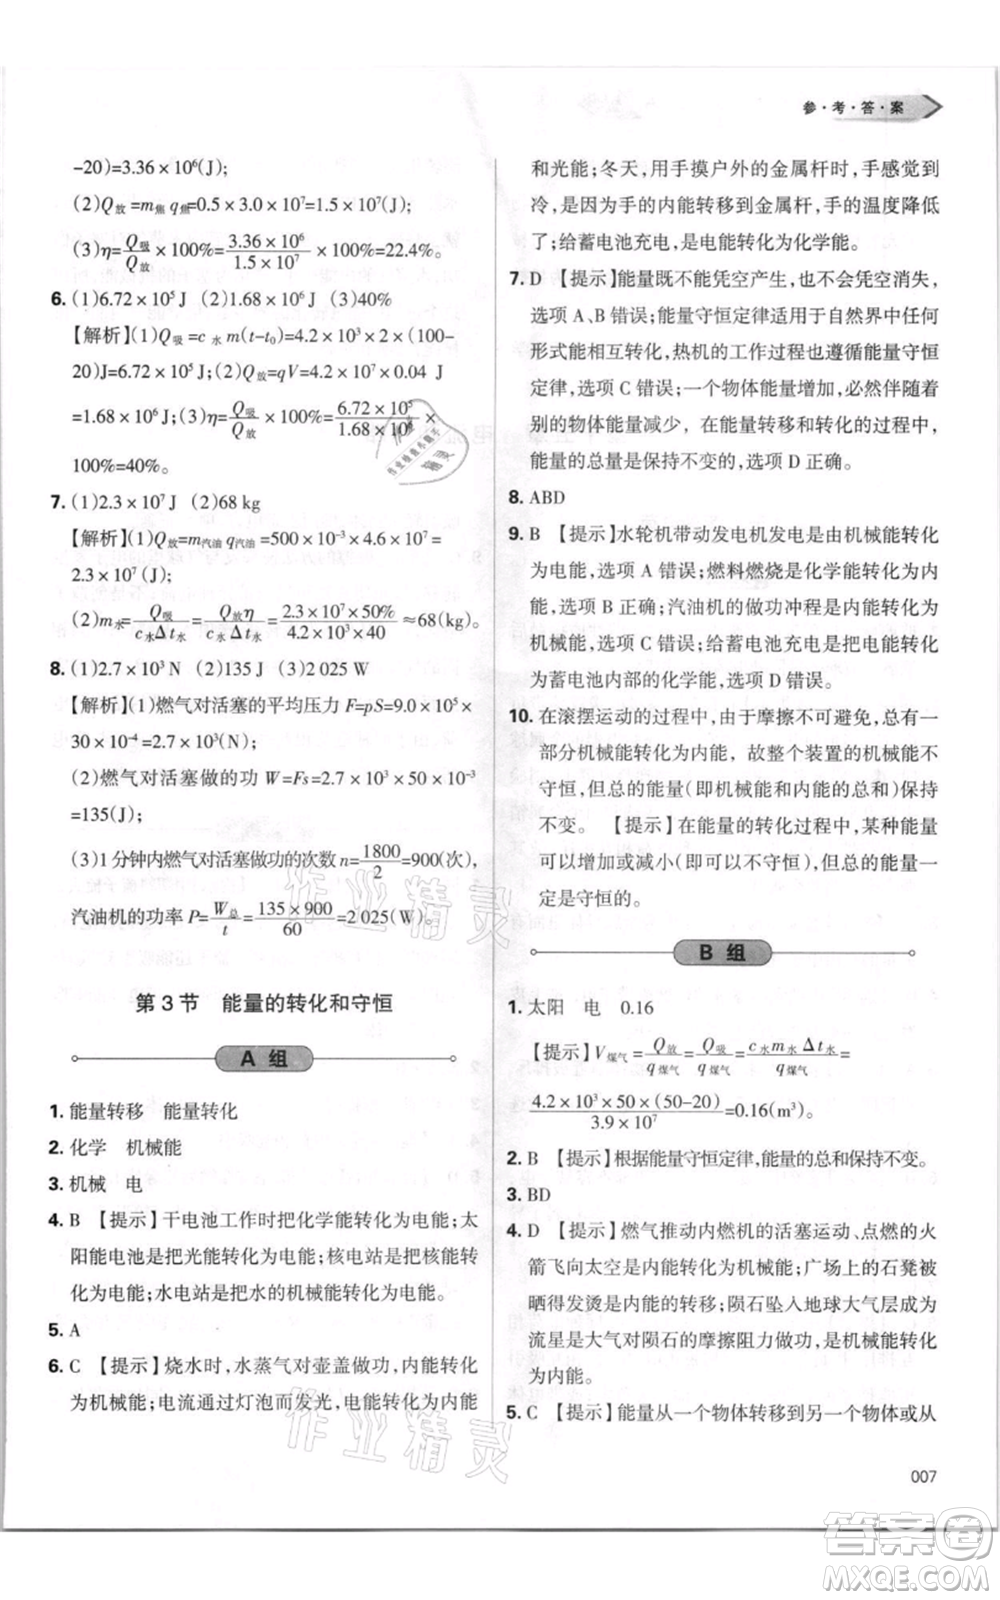 参·考·答·案
-20)=3.36×10⁶(J);
(2)Q放=m焦 q焦=0.5×3.0×10⁷=1.5×10⁷(J);
(3)η=Q吸/Q放×100%=3.36×10⁶/1.5×10⁷×100%=22.4%。
6. (1)6.72×10⁵ J (2)1.68×10⁶ J (3)40%
【解析】(1)Q吸=c水 m(t-t₀)=4.2×10³×2×(100-
20)J=6.72×10⁵ J;(2)Q放=qV=4.2×10⁷×0.04 J
=1.68×10⁶ J;(3)η=Q吸/Q放×100%=6.72×10⁵/1.68×10⁶×
100%=40%。
7. (1)2.3×10⁷ J (2)68 kg
【解析】(1)Q放=m汽油 q汽油=500×10⁻³×4.6×10⁷=
2.3×10⁷(J);
(2)m水=Q吸/c水Δt水=Q放η/c水Δt水=2.3×10⁷×50%/4.2×10³×40≈68(kg)。
8. (1)2.7×10³ N (2)135 J (3)2 025 W
【解析】(1)燃气对活塞的平均压力 F=pS=9.0×10⁵×
30×10⁻⁴=2.7×10³(N);
(2)燃气对活塞做的功 W=Fs=2.7×10³×50×10⁻³
=135(J);
(3)1分钟内燃气对活塞做功的次数 n=1800/2=900(次),
汽油机的功率 P=W总/t=135×900/60=2 025(W)。
第3节 能量的转化和守恒
A 组
1. 能量转移 能量转化
2. 化学 机械能
3. 机械 电
4. B 【提示】干电池工作时把化学能转化为电能;太
阳能电池是把光能转化为电能;核电站是把核能转
化为电能;水电站是把水的机械能转化为电能。
5. A
6. C 【提示】烧水时,水蒸气对壶盖做功,内能转化
为机械能;电流通过灯泡而发光,电能转化为内能
和光能;冬天,用手摸户外的金属杆时,手感觉到
冷,是因为手的内能转移到金属杆,手的温度降低
了;给蓄电池充电,是电能转化为化学能。
7. D 【提示】能量既不能凭空产生,也不能凭空消失,
选项A、B错误;能量守恒定律适用于自然界中任何
形式能的相互转化,热机的工作过程也遵循能量守恒
定律,选项C错误;一个物体能量增加,必然伴随着
别的物体能量减少,在能量转移和转化的过程中,
能量的总量是保持不变的,选项D正确。
8. ABD
9. B 【提示】水轮机带动发电机发电是由机械能转化
为电能,选项A错误;燃料燃烧是化学能转化为内
能,选项B正确;汽油机的做功冲程是内能转化为
机械能,选项C错误;给蓄电池充电是把电能转化
为蓄电池内的化学能,选项D错误。
10. 在滚摆运动的过程中,由于摩擦不可避免,总有一
部分机械能转化为内能,故整个装置的机械能不
守恒,但总的能量(即机械能和内能的总和)保持
不变。 【提示】在能量的转化过程中,某种能量
可以增加或减小(即可以不守恒),但总的能量一
定是守恒的。
B 组
1. 太阳 电 0.16
【提示】V煤气=Q放/q煤气=Q吸/q煤气=c水m水Δt水/q煤气=
4.2×10³×50×(50-20)/3.9×10⁷=0.16(m³)。
2. B 【提示】根据能量守恒定律,能量的总和保持不变。
3. BD
4. D 【提示】燃气推动内燃机的活塞运动、点燃的火
箭飞向太空是内能转化为机械能;广场上的石凳被
晒得发烫是内能的转移;陨石坠入地球大气层成为
流星是大气对陨石的摩擦阻力做功,是机械能转化
为内能。
5. C 【提示】能量从一个物体转移到另一个物体或从
007
作业精灵
作业精灵
答案圈
MXQE.COM